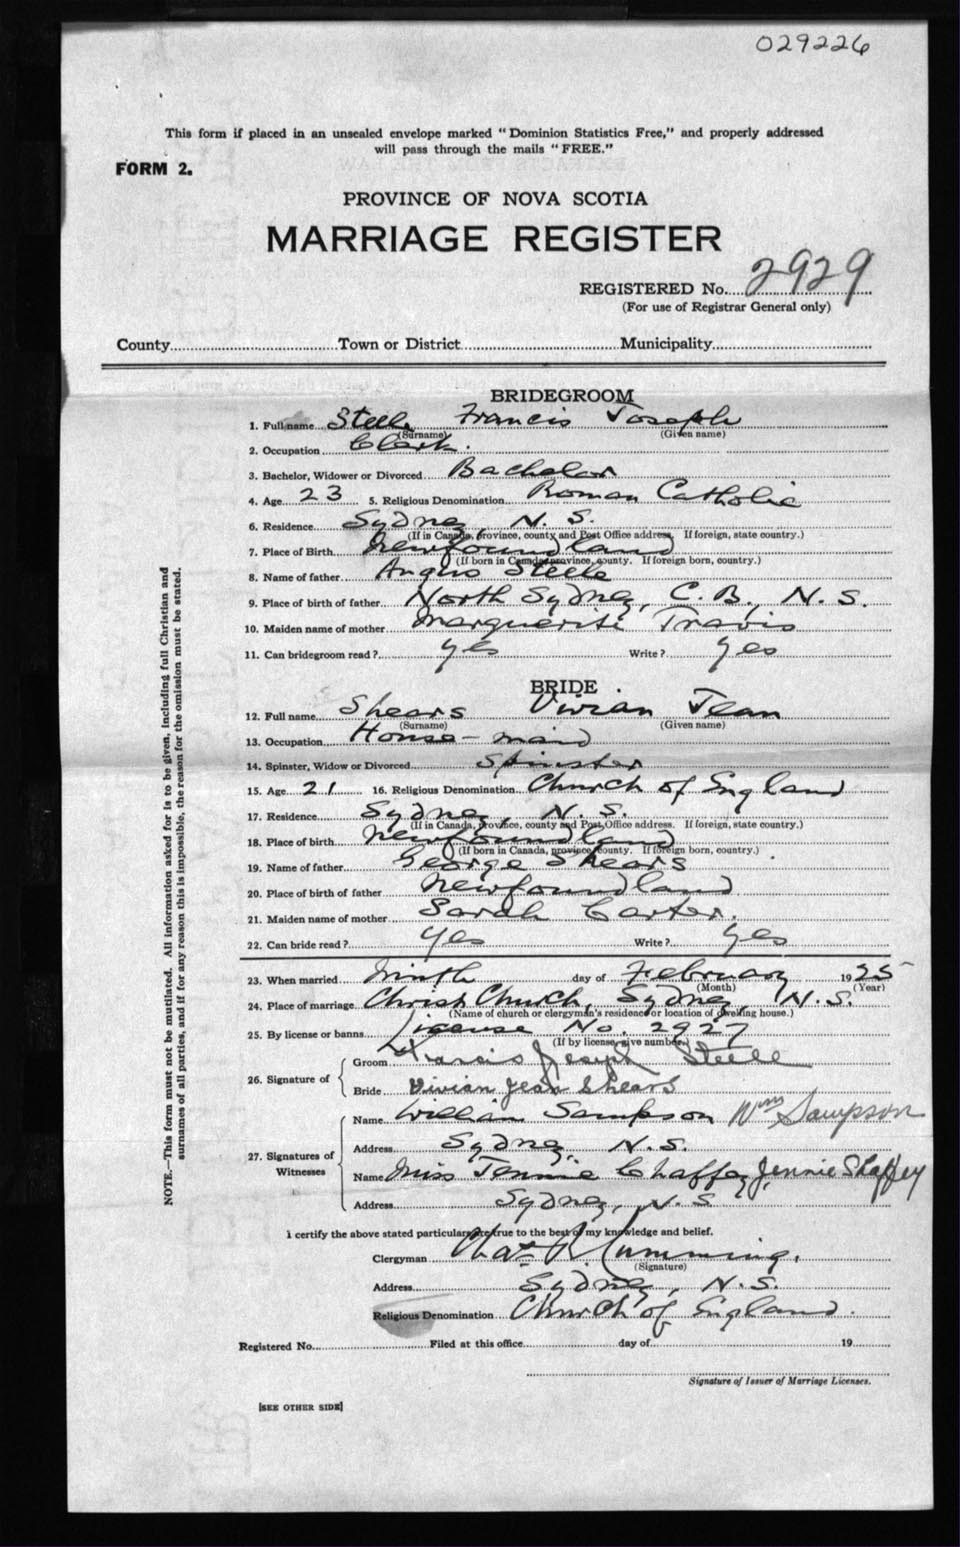 029226
This form if placed in an unsealed envelope marked "Dominion Statistics Free," and properly addressed
will pass through the mails "FREE."
FORM 2.
PROVINCE OF NOVA SCOTIA
MARRIAGE REGISTER
REGISTERED No. 2929
(For use of Registrar General only)
County Town or District Municipality
BRIDEGROOM
1. Full name Steele Francis Joseph
(Surname) (Given name)
2. Occupation Clerk.
3. Bachelor, Widower or Divorced Bachelor
4. Age 23 5. Religious Denomination Roman Catholic
6. Residence Sydney, N. S.
(If in Canada, province, county and Post Office address. If foreign, state country.)
7. Place of Birth Newfoundland
(If born in Canada, province, county. If foreign born, country.)
8. Name of father Angus Steele
9. Place of birth of father North Sydney, C. B., N. S.
10. Maiden name of mother Marguerite Travis
11. Can bridegroom read? yes Write? yes
BRIDE
12. Full name Shears Vivian Jean
(Surname) (Given name)
13. Occupation House-maid
14. Spinster, Widow or Divorced Spinster
15. Age 21 16. Religious Denomination Church of England
17. Residence Sydney, N. S.
(If in Canada, province, county and Post Office address. If foreign, state country.)
18. Place of birth Newfoundland
(If born in Canada, province, county. If foreign born, country.)
19. Name of father George Shears
20. Place of birth of father Newfoundland
21. Maiden name of mother Sarah Carter.
22. Can bride read? yes Write? yes
23. When married Ninth day of February 1925
(Month) (Year)
24. Place of marriage Christ Church, Sydney, N. S.
(Name of church or clergyman's residence or location of dwelling house.)
25. By license or banns License No. 2927
(If by license, give number.)
26. Signature of
Groom Francis Joseph Steele
Bride Vivian Jean Shears
27. Signatures of Witnesses
Name William Sampson Wm Sampson
Address Sydney, N. S.
Name Miss Jennie Chaffey, Jennie Shaffey
Address Sydney, N. S
I certify the above stated particulars are true to the best of my knowledge and belief.
Clergyman Chas. R. Cumming.
(Signature)
Address Sydney, N. S.
Religious Denomination Church of England.
Registered No. Filed at this office day of 19
Signature of Issuer of Marriage Licenses.
[SEE OTHER SIDE]
NOTE.—This form must not be mutilated. All information asked for is to be given, including full Christian and
surnames of all parties, and if for any reason this is impossible, the reason for the omission must be stated.